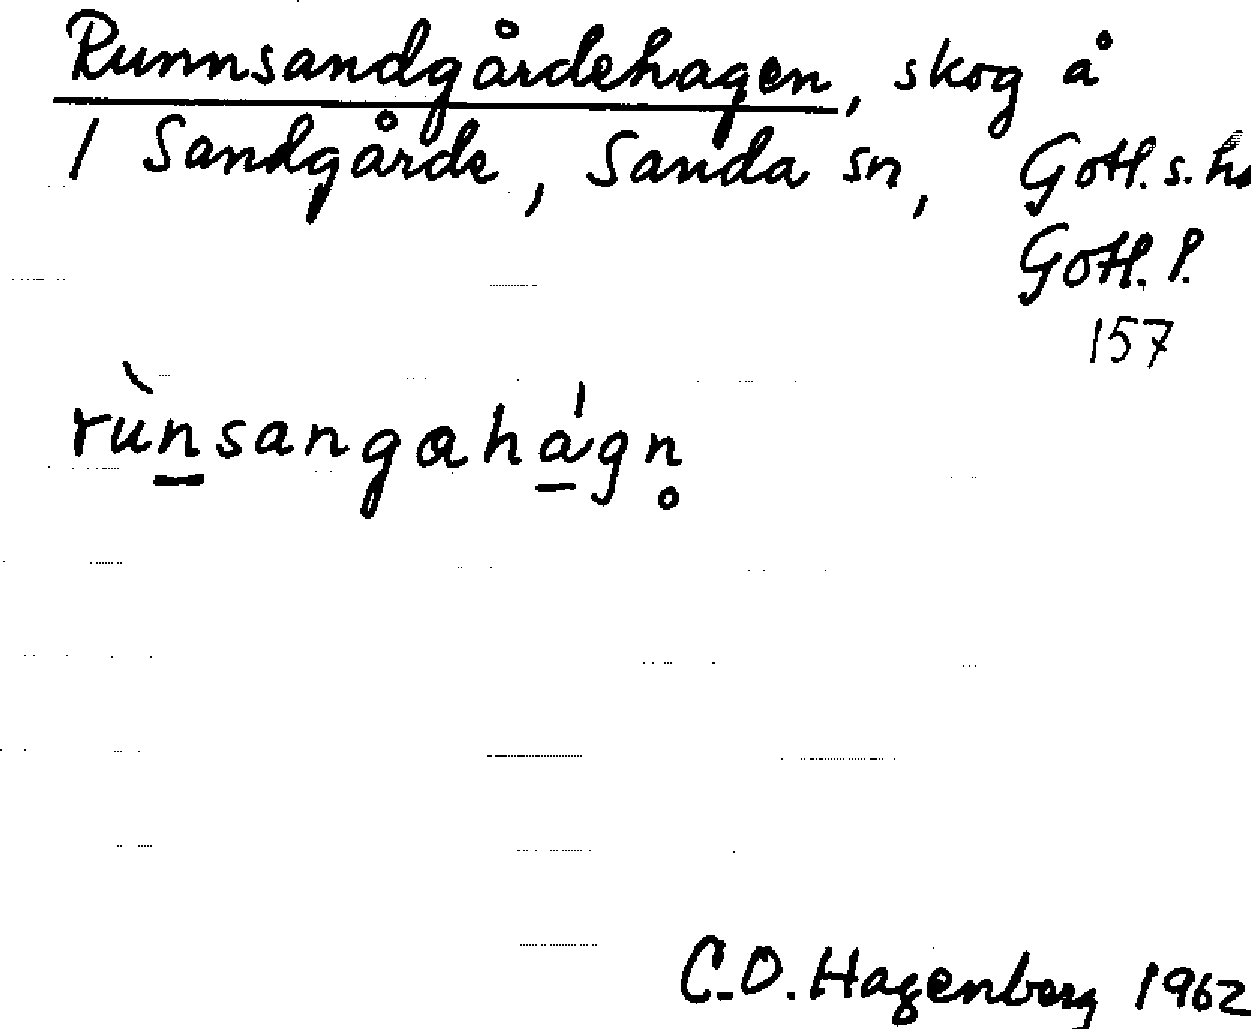 Runnsandgårdehagen, skog å
1 Sandgårde, Sanda sn, Gotl. s. hd
Gotl. l.
157
rùn̲sangahá̲gn̥
C.O. Hagenberg 1962